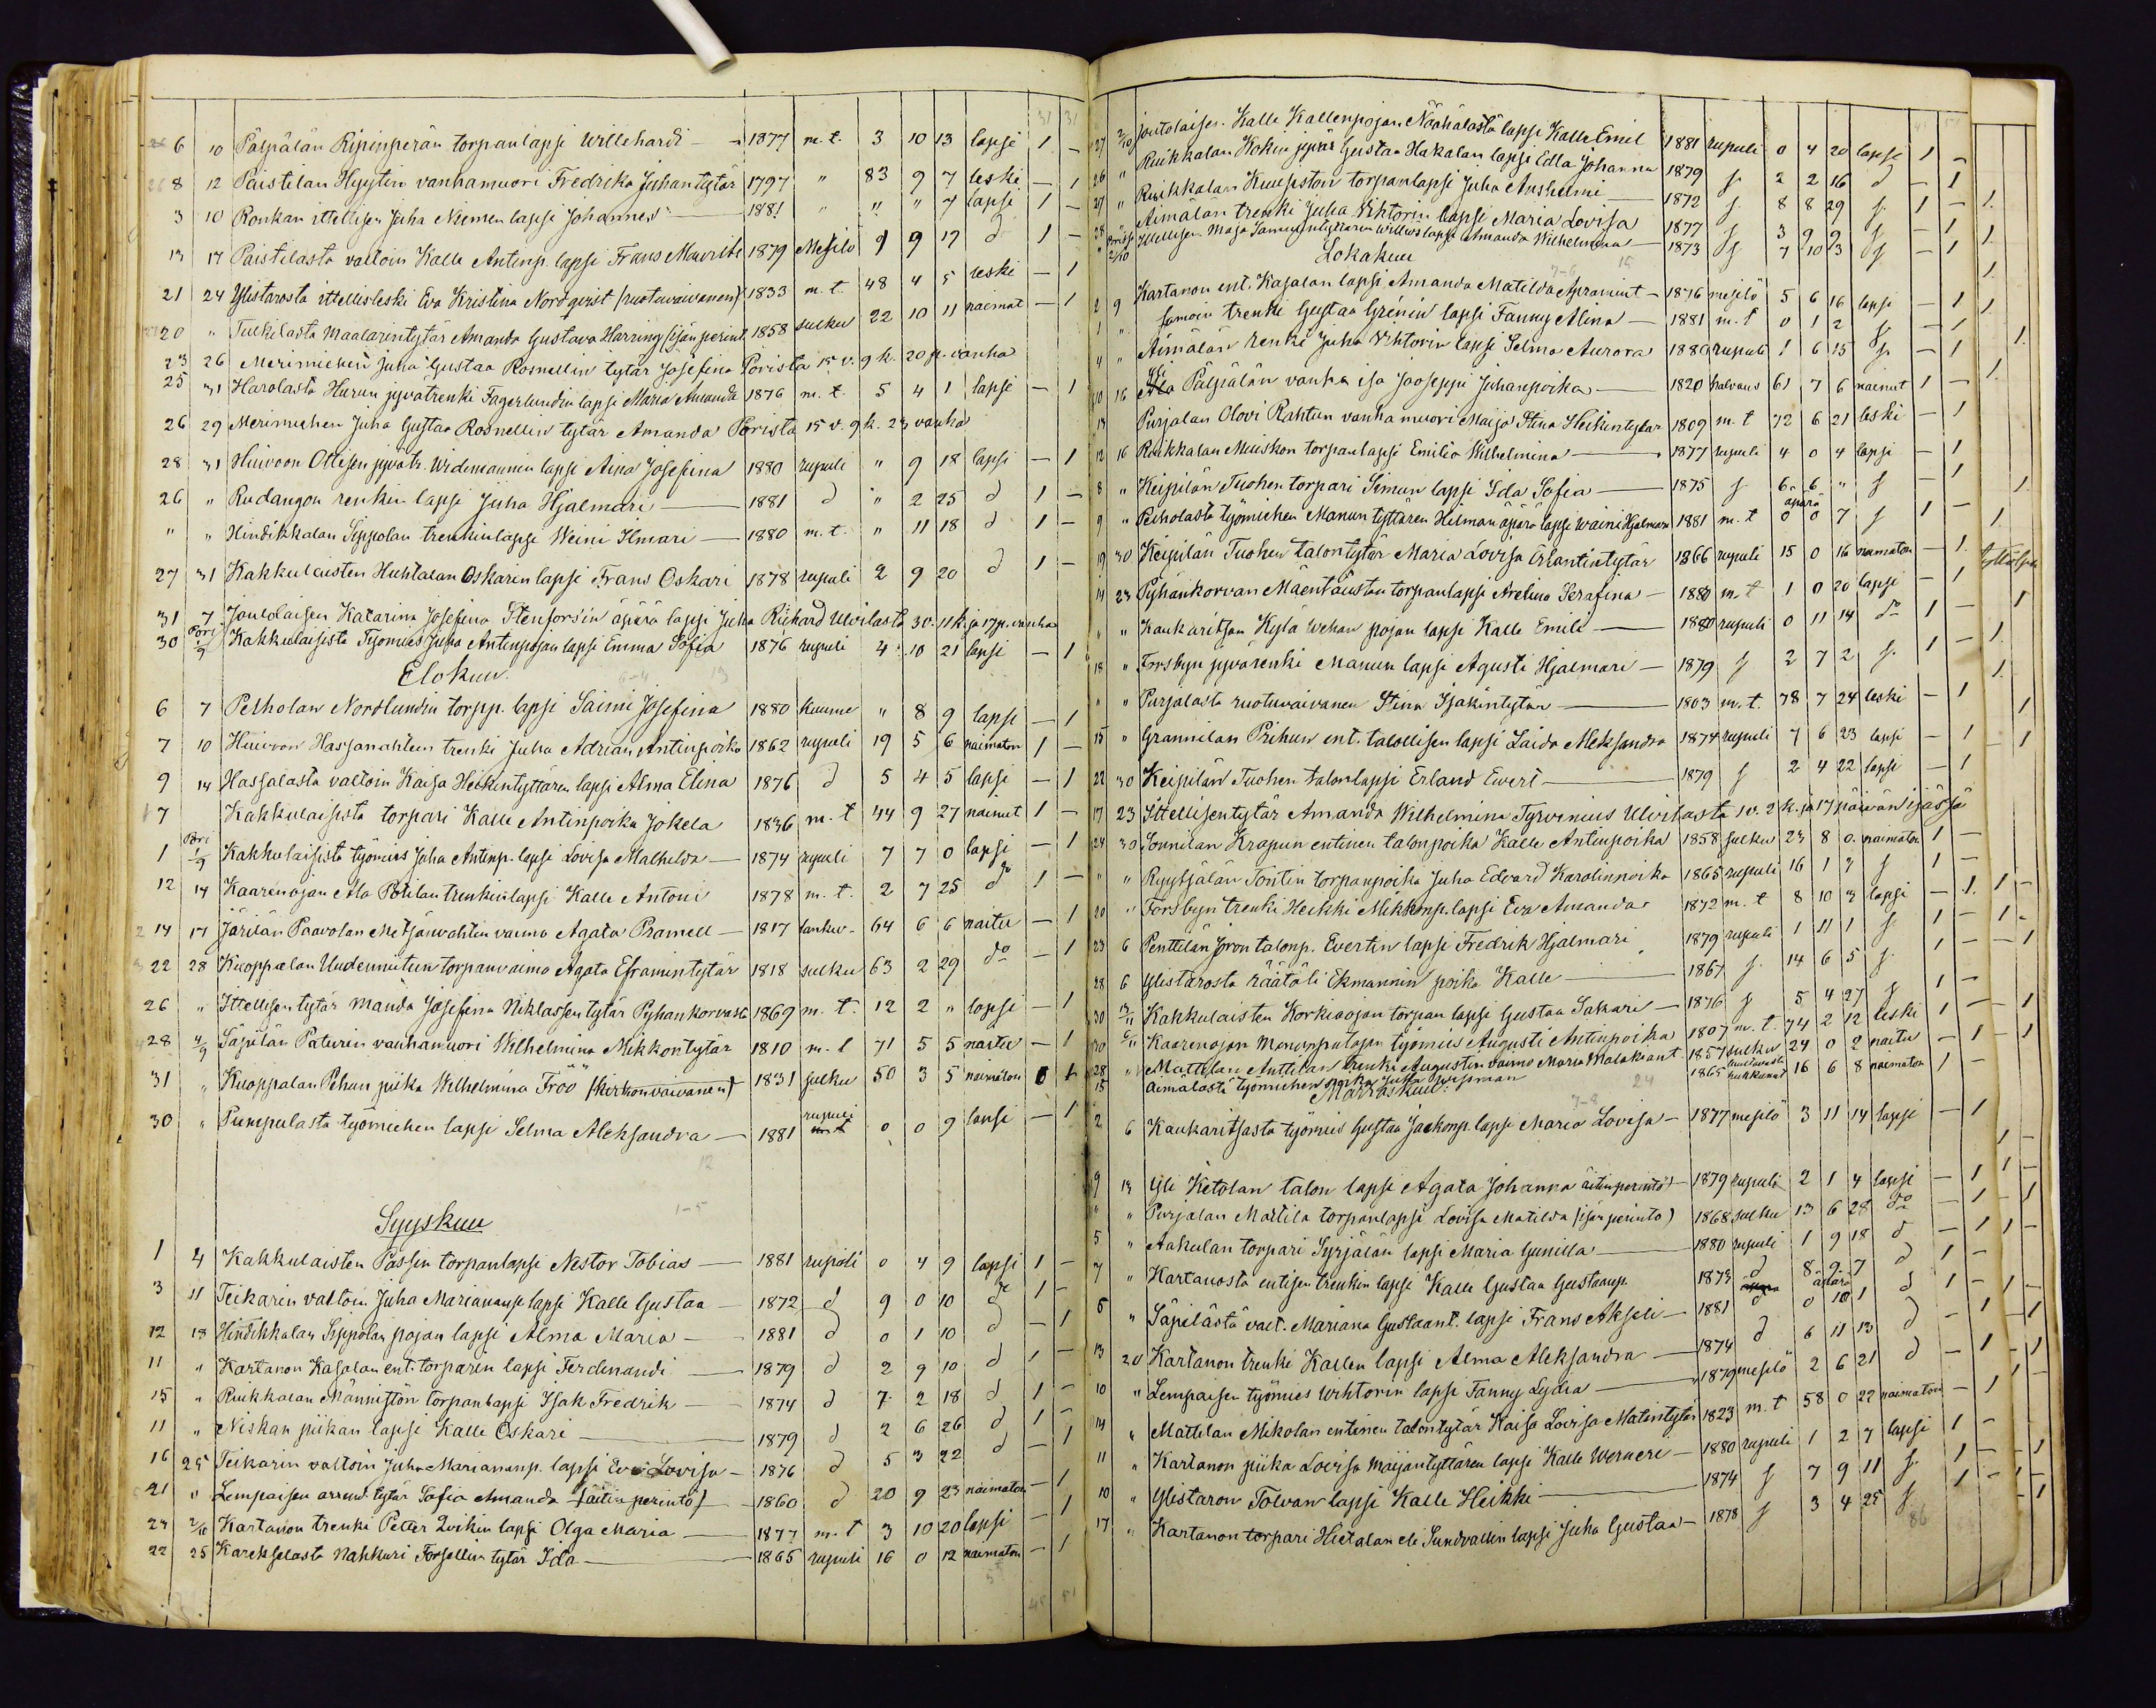 6 10 Pälpälän Ripinperän torpan lapsi Willehardi — 1877 m. t. 3 10 13 lapsi 1 –
8 12 Paistilan Hyytin vanhamuori Fredrika Juhantytär 1797 " 83 9 7 leski – 1
3 10 Ronkan ittellisen Juha Niemen lapsi Johannes 1881 " " " 7 lapsi 1 –
13 17 Paistilasta valtoin Kalle Antinp. lapsi Frans Mauritz 1879 Mesilö 1 9 17 d 1 –
21 24 Ylistarosta ittellisleski Eva Kristina Nordqvist (ruotuvaivanen) 1833 m. t. 48 4 5 leski – 1
20 " Tulkilasta Maalarintytär Amanda Gustava Harring (isän perint 1858 sulku 22 10 11 naemat – 1
23 26 Merimiehen Juha Gustaa Rosnellin tytär Josefina Porista 15 v. 9 k. 20 p. vanha
25 31 Harolasta Harun jyvätrenki Fagerlundin lapsi Maria Amanda 1876 m. t. 5 4 1 lapsi – 1
26 29 Merimiehen Juha Gustaa Rosnellin tytär Amanda Porista 15 v. 9 k. 23 vanha
28 31 Huivoon Ottisen jyvätr. Widemannin lapsi Aina Josefina 1880 rupuli " 9 18 lapsi – 1
26 " Rudangon renkin lapsi Juha Hjalmari — 1881 d " 2 25 d 1 –
" " Hindikkalan Sippolan trenkin lapsi Weini Ilmari — 1880 m. t. " 11 18 d 1 –
27 31 Kakkulaisten Huhtalan Oskarin lapsi Frans Oskari 1878 rupuli 2 9 20 d 1 –
31 7 Joutolaisen Katarina Josefina Stenforsin äpärä lapsi Juha Rikhard Ulvilasta 3 v. 11 k. ja 17 p. vanha
30 Pori 1/9 Kakkulaisista Työmies Juha Antinpojan lapsi Emma Sofia 1876 rupuli 4 10 21 lapsi – 1
Elokuu.
6 7 Peltholan Nordlundin torpp. lapsi Saimi Josefina 1880 kuume " 8 9 lapsi – 1
7 10 Huivoon Hasjanahteen trenki Juha Adrian Antinpoika 1862 rupuli 19 5 6 naimaton 1 –
9 14 Hassalasta valtoin Kaisa Heikintyttären lapsi Alma Elina 1876 d 5 4 5 lapsi – 1
7 Kakkulaisista torpari Kalle Antinpoika Jokela 1836 m. t 44 9 27 nainut 1 –
1 Pori 1/9 Kakkulaisista työmies Juha Antinp. lapsi Lovisa Mathilda — 1874 rupuli 7 7 0 lapsi – 1
12 14 Kaarenojan Ala Pohilan trenkin lapsi Kalle Antoni 1878 m. t. 2 7 25 do 1 –
14 17 Järilän Paavolan Metsänvahtin vaimo Agata Pramell — 1817 64 6 6 naitu – 1
22 28 Kuoppalan Uudenniitun torpanvaimo Agata Eframintytär 1818 sulku 63 2 29 do – 1
26 " Ittellisen tytär Manda Josefina Niklassen tytär Pyhankorvasta 1869 m. t. 12 2 " lapsi – 1
28 4/9 Säpilän Paturin vanhamuori Wilhelmina Mikkontytär 1810 m. t 71 5 5 naitu – 1
31 " Kuoppalan Pehun piika Wilhelmina Fröö (kirkonvaivanen) 1831 sulku 50 3 5 naimaton 0 1
30 " Pumpulasta työmiehen lapsi Selma Aleksandra — 1881 rupuli 0 0 9 lapsi – 1
Syyskuu
1 4 Kakkulaisten Passin torpanlapsi Nestor Tobias — 1881 rupuli 0 4 9 lapsi 1 –
3 11 Teikarin valtoin Juha Mariananp. lapsi Kalle Gustaa — 1872 d 9 0 10 do 1 –
12 18 Hindikkalan Sippolan pojan lapsi Alma Maria — 1881 d 0 1 10 d – 1
11 " Kartanon Kasalan ent. torparin lapsi Ferdinandi — 1879 d 2 9 10 d 1 –
15 " Ruikkalan Männistön torpan lapsi Isak Fredrik — 1874 d 7 2 18 d 1 –
11 " Niskan piikan lapsi Kalle Oskari — 1879 d 2 6 26 d 1 –
16 25 Teikarin valtoin Juha Mariananp. lapsi Eva Lovisa — 1876 d 5 3 22 d – 1
21 " Lempaisen arrend. tytär Sofia Amanda (äitin perintö) — 1860 d 20 9 23 naimaton – 1
24 2/10 Kartanon trenki Petter Qvikin lapsi Olga Maria — 1877 m. t 3 10 20 lapsi – 1
22 25 Karekselasta Nahkuri Forsellin tytär Ida — 1865 rupuli 16 0 12 naimaton – 1
27 2/10 joutolaisen Kalle Kallenpojan Näähälästä lapsi Kalle Emil 1881 rupuli 0 4 20 lapsi 1 –
26 " Ruikkalan Kokin jyvär Gustaa Hakalan lapsi Edla Johanna 1879 2 2 16 d – 1
27 " Ruikkalan Kuupston torpanlapsi Juha Anshelmi 1872 8 8 29 1 –
28 " Aimälän trenki Juha Vihtorin lapsi Maria Lovisa 1877 3 9 9 – 1
Ittellisen Maja lapsi Amanda Wilhelmina — 1873 7 10 3 – 1
Lokakuu
2 9 Kartanon ent. Kasalan lapsi Amanda Matilda Aframint — 1876 mesilö 5 6 16 lapsi – 1
1 " Samoin trenki Gustaa Grénin lapsi Fanny Alina — 1881 m. t 0 1 2 – 1
" " Aimälän renki Juha Vihtorin lapsi Selma Aurora 1880 rupuli 1 6 15 – 1
10 16 Pälpälän vanha isä Jooseppi Juhanpoika — 1820 halvaus 61 7 6 nainut 1 –
Purjalan Olovi Rahtun vanha muori Maija Stina Heikintytär 1809 m. t 72 6 21 leski – 1
12 16 Ruikkalan Muiskon torpanlapsi Emilia Wilhelmina — 1877 rupuli 4 0 4 lapsi – 1
8 " Keipilän Tuohen torpari Simun lapsi Ida Sofia — 1875 6 6 " – 1
9 " Peiholasta työmiehen Manun tyttären Hilman äpärä lapsi Waini Hjalmari 1881 m. t äpärä 0 0 7 1 –
19 30 Keipilän Tuohen talontytär Maria Lovisa Erlantintytär 1866 rupuli 15 0 16 naimaton – 1
14 23 Pyhänkorvan Mäentaustan torpanlapsi Avelina Serafina — 1880 m. t 1 0 20 lapsi – 1
" " Kaukaritsan Kylä Wehan pojan lapsi Kalle Emili — 1880 rupuli 0 11 14 do 1 –
18 " Forsbyn jyvärenki Manun lapsi Agusti Hjalmari — 1879 2 7 2 1 –
" " Purjalasta ruotuvaivanen Stina Isakintytär — 1803 m. t. 78 7 24 leski – 1
15 " Grannilan Prihun ent. talollisen lapsi Laida Aleksandra 1874 rupuli 7 6 23 lapsi – 1
22 30 Keipilän Tuohen talonlapsi Erland Evert — 1879 2 4 22 lapsi 1
17 23 Ittellisentytär Amanda Wilhelmina Tyrvenius Ulvilasta 1 v. 2 k. ja 17 päivän ijässä
24 30 Sonnilan Krapun entinen talonpoika Kalle Antinpoika 1858 sulku 23 8 0 naimaton 1 –
" " Ryytsälän Tontin torpanpoika Juha Edvard Karolinpoika 1865 rupuli 16 1 7 1 –
20 " Forsbyn trenki Heikki Mikkonp. lapsi Eva Amanda 1872 m. t 8 10 3 lapsi – 1
23 6 Penttilän Joron talonp. Evertin lapsi Fredrik Hjalmari 1879 rupuli 1 11 1 1 –
28 6 Ylistarosta räätäli Ekmannin poika Kalle — 1867 14 6 5 1 –
30 Kakkulaisten Korkiaojan torpan lapsi Gustaa Sakari — 1876 5 4 27 1 –
30 Kaarenojan työmies Augusti Antinpoika 1807 m. t. 74 2 12 leski 1 –
28 " Mattilan Anttilan trenki Augustin vaimo Maria Malakiant 1857 sulku 24 0 2 naitu – 1
15 Aimalasta työmiehen poika Juha 1865 hukkunut 16 6 8 naimaton 1 –
Marraskuu.
2 6 Kaukaritsasta työmies Gustaa Jaakonp. lapsi Maria Lovisa — 1877 mesilö 3 11 14 lapsi – 1
9 13 Yli Ketolan talon lapsi Agata Johanna äitin perintö) — 1879 rupuli 2 1 4 lapsi – 1
" " Purjalan Mattila torpanlapsi Lovisa Matilda (isän perintö) 1868 sulku 13 6 28 do – 1
5 " Aakulan torpari Syrjälän lapsi Maria Gunilla — 1880 rupuli 1 9 18 d – 1
7 " Kartanosta entisen trenkin lapsi Kalle Gustaa Gustaanp. 1873 d 8 9 7 d 1 –
6 " Säpilästä valt. Mariana Gustaant. lapsi Frans Akseli — 1881 d äpärä 0 10 1 d 1 –
13 20 Kartanon trenki Kallen lapsi Alma Aleksandra — 1874 d 6 11 13 d – 1
10 " Lempaisen työmies Wihtorin lapsi Fanny Lydia — 1879 mesilö 2 6 21 d – 1
14 " Mattilan Mikolan entinen talontytär Kaisa Lovisa Matintytär 1823 m. t 58 0 22 naimaton – 1
11 " Kartanon piika Lovisa Maijantyttären lapsi Kalle Wernere — 1880 rupuli 1 2 7 lapsi 1 –
10 " Ylistaron Tolvan lapsi Kalle Heikki — 1874 7 9 11 1 –
17 " Kartanon torpari Hietalan eli Sundvallin lapsi Juha Gustaa — 1878 3 4 25 1 –
86